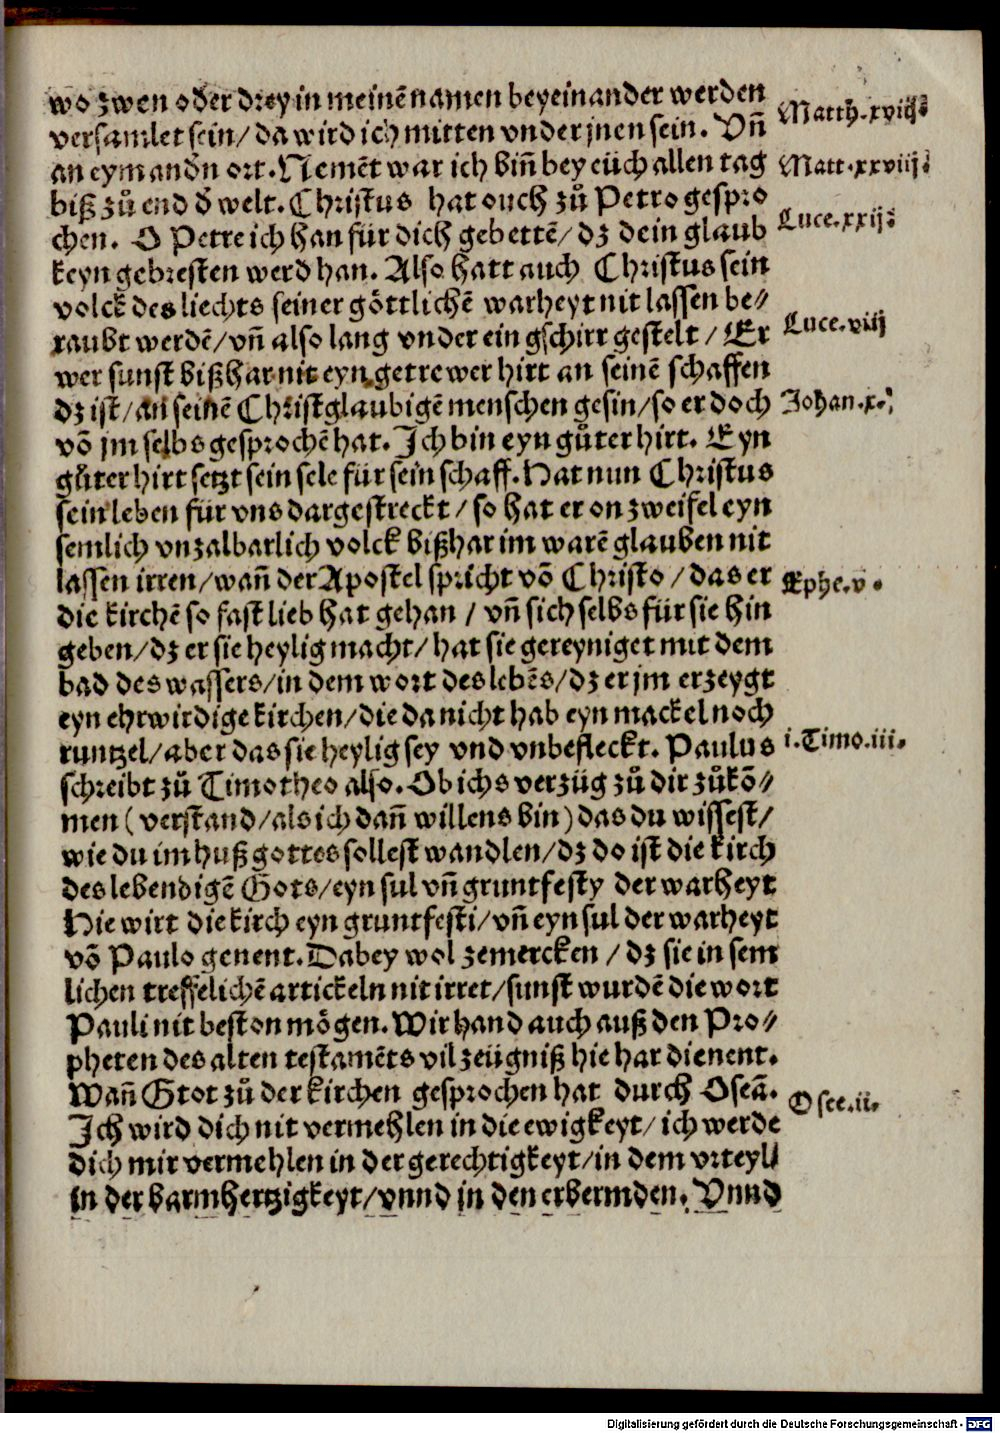 wo zwen oder drey in meinē namen beyeinander werden
versamlet sein/ da wird ich mitten vnder jnen sein. Vñ
Matth.xviij.
an eym andn ort. Nemēt war ich biñ bey eüch allen tag
Matt.xxviij.
biß zů end d̕ welt. Christus hat ouch zů Petro gespro
chen. O Petre ich han für dich gebettē/ dz dein glaub
Luce.xxij.
keyn gebresten werd han. Also hatt auch Christus sein
volck des liechts seiner göttlichē warheyt nit lassen be⸗
raubt werdē/ vñ also lang vnder ein gschirr gestelt / Er
Luce.viij
wer sunst bißhar nit eyn getrewer hirt an seinē schaffen
dz ist/ an seinē Christglaubigē menschen gesin/ so er doch
Johan.x.
vō jm selbs gesprochē hat. Ich bin eyn gůter hirt. Eyn
gůter hirt setzt sein sele für sein schaff. Hat nun Christus
sein leben für vns dargestreckt / so hat er on zweifel eyn
semlich vnzalbarlich volck bißhar im warē glauben nit
lassen irren/ wañ der Apostel spricht vō Christo / das er
Ephe.v.
die kirchē so fast lieb hat gehan / vñ sich selbs für sie hin
geben/ dz er sie heylig macht/ hat sie gereyniget mit dem
bad des wassers/ in dem wort des lebēs/ dz er jm erzeygt
eyn ehrwirdige kirchen/ die da nicht hab eyn mackel noch
runtzel/ aber das sie heylig sey vnd vnbefleckt. Paulus
i.Timo.iii.
schreibt zů Timotheo also. Ob ichs verzüg zů dir zůkō⸗
men ( verstand/ als ich dañ willens bin ) das du wissest/
wie du im huß gottes sollest wandlen/ dz do ist die kirch
des lebendigē Gots/ eyn sul vñ gruntfesty der warheyt
Hie wirt die kirch eyn gruntfesti/ vñ eyn sul der warheyt
vō Paulo genent. Dabey wol zemercken / dz sie in sem
lichen treffelichē artickeln nit irret/ sunst wurdē die wort
Pauli nit beston mögen. Wir hand auch auß den Pro⸗
pheten des alten testamēts vil zeügniß hie har dienent.
Wañ Gtot zů der kirchen gesprochen hat durch Oseā.
Osee.ii.
Ich wird dich nit vermehlen in die ewigkeyt/ ich werde
dich mir vermehlen in der gerechtigkeyt/ in dem vrteyl/
in der barmhertzigkeyt/ vnnd in den erbermden. Vnnd
Digitalisierung gefördert durch die Deutsche Forschungsgemeinschaft - DFG